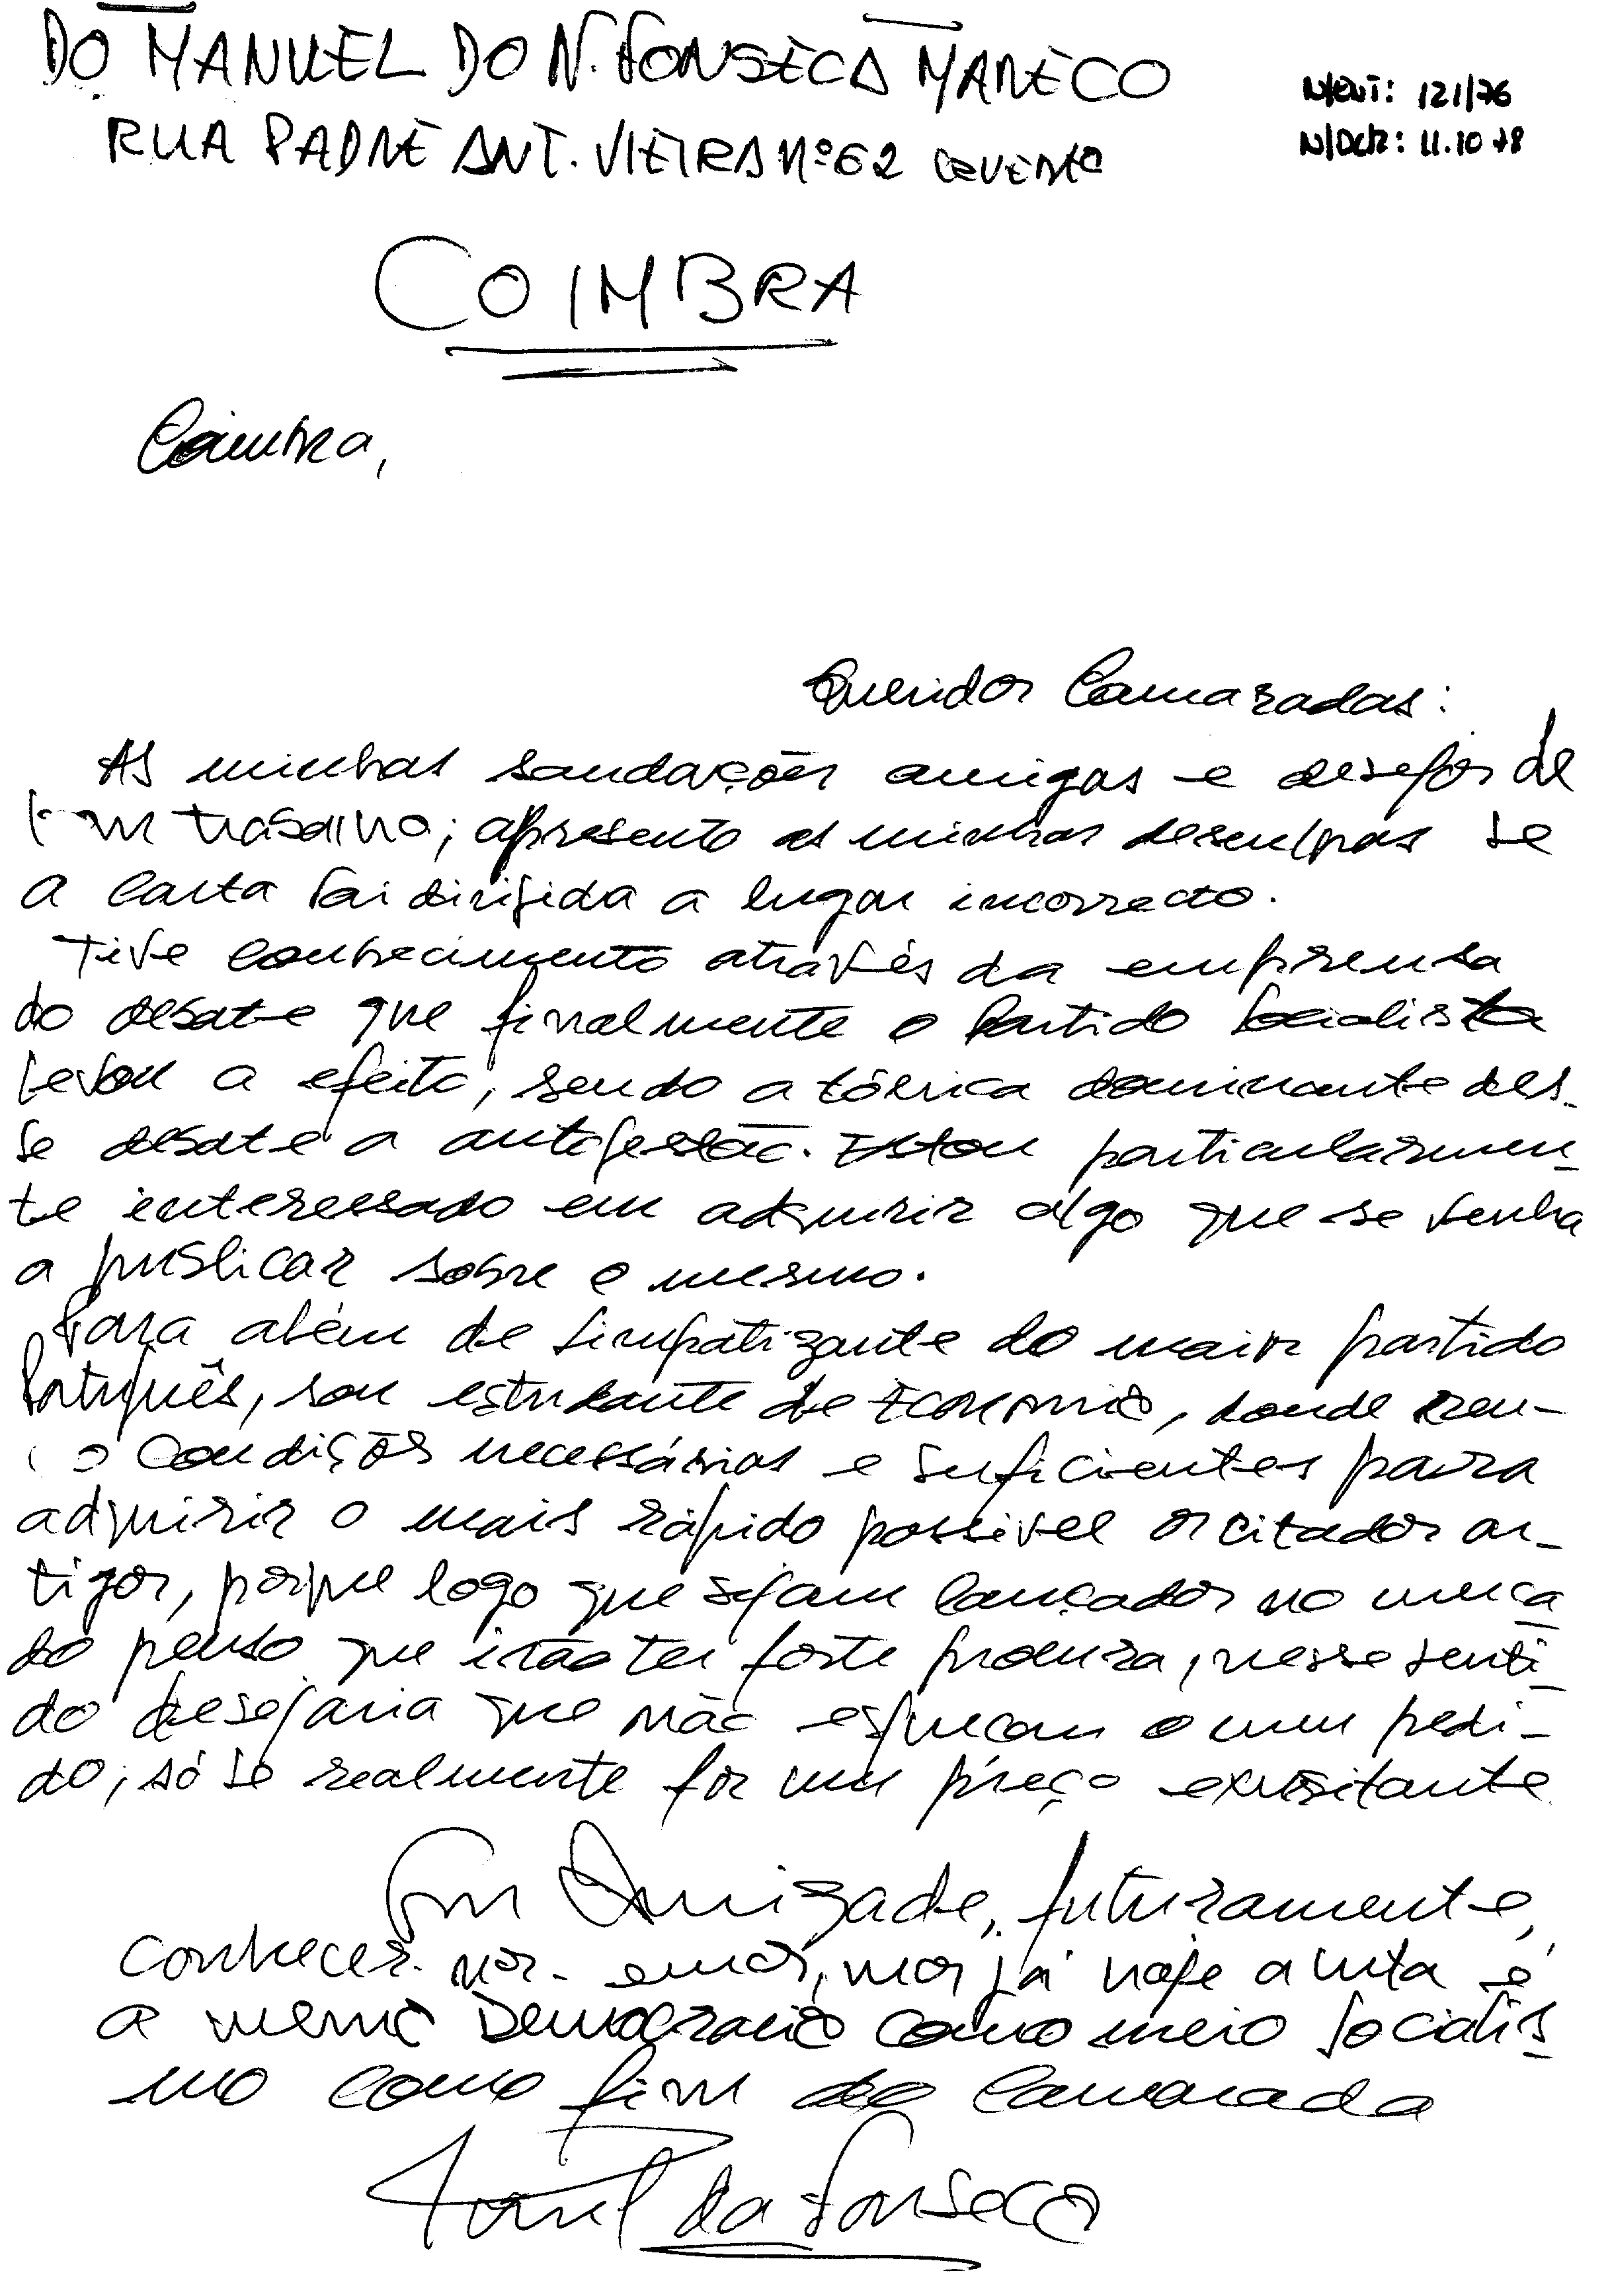 DO MANUEL DO N. FONSECA MARECO
N/ENT: 121/76
RUA PADRE ANT. VIEIRA Nº 62
N/DCR: 11.10 78
COIMBRA
Coimbra,
Queridos Camaradas:
As minhas saudações amigas e desejos de
bom trabalho; apresento as minhas desculpas se
a carta vai dirigida a lugar incorrecto.
Tive conhecimento através da emprensa
do debate que finalmente o Partido Socialista
levou a efeito, sendo a tónica dominante des-
se debate a autogestão. Estou particularmen-
te interessado em adquirir algo que se venha
a publicar sobre o mesmo.
Para além de simpatizante do maior partido
Português, sou estudante de Economia, donde reu-
no condições necessárias e suficientes para
adquirir o mais rápido possível os citados ar-
tigos, porque logo que sejam lançados no merca
do penso que irão ter forte procura, nesse senti-
do desejaria que não esqueçam o meu pedi-
do, só se realmente for um preço exorbitante
Com Amizade, futuramente,
conhecer-nos-emos, mas já hoje a luta é
a mesma Democracia como meio Socialis-
mo como fim do Camarada
Manuel da Fonseca